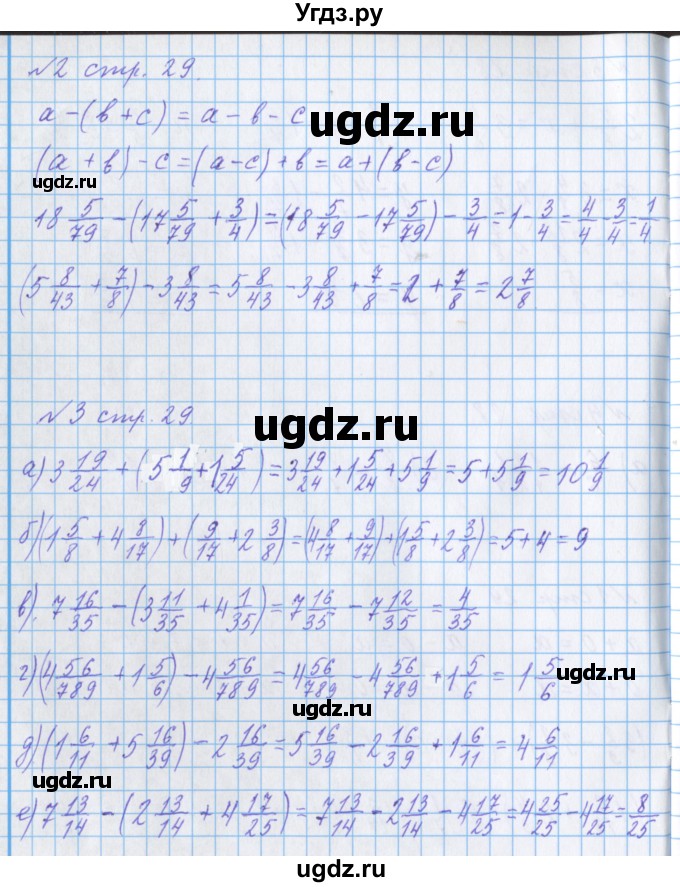 Угдз.ру
№2 стр. 29.
a-(в+с)=a-в-с
ugdz.ru
(a+в)-с=(a-с)+в=a+(в-с)
ugdz.ru
18 5/79 - (17 5/79 + 3/4) = (18 5/79 - 17 5/79) - 3/4 = 1 - 3/4 = 4/4 - 3/4 = 1/4
(5 8/43 + 7/8) - 3 8/43 = 5 8/43 - 3 8/43 + 7/8 = 2 + 7/8 = 2 7/8
№3 стр. 29
ugdz.ru
а) 3 19/24 + (5 1/9 + 1 5/24) = 3 19/24 + 1 5/24 + 5 1/9 = 5 + 5 1/9 = 10 1/9
б) (1 5/8 + 4 8/17) + (9/17 + 2 3/8) = (4 8/17 + 9/17) + (1 5/8 + 2 3/8) = 5 + 4 = 9
в). 7 16/35 - (3 11/35 + 4 1/35) = 7 16/35 - 7 12/35 = 4/35
г) (4 56/789 + 1 5/6) - 4 56/789 = 4 56/789 - 4 56/789 + 1 5/6 = 1 5/6
ugdz.ru
ugdz.ru
д) (1 6/11 + 5 16/39) - 2 16/39 = 5 16/39 - 2 16/39 + 1 6/11 = 4 6/11
е) 7 13/14 - (2 13/14 + 4 17/25) = 7 13/14 - 2 13/14 - 4 17/25 = 4 25/25 - 4 17/25 = 8/25
ugdz.ru